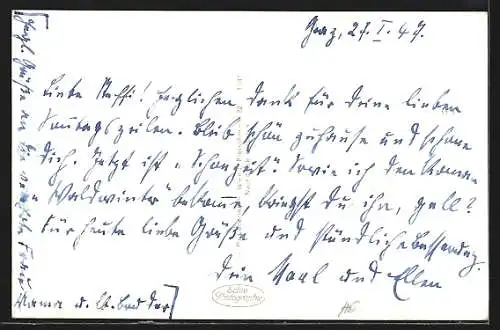 Graz, 27. I. 47.
Liebe Steffi! Herzlichen Dank für Deine lieben
Sonntagszeilen. Bleib schön zuhause und schone
Dich. Jetzt ist „Schonzeit“. Sowie ich den Roman
„Waldwinter“ bekomme, bringst Du ihn, gell?
Für heute liebe Grüße und stündliche Besserung.
Dein Karl und Ellen
Herzl. Grüße an die verehrte Frau
Mama u.
Echte Photographie